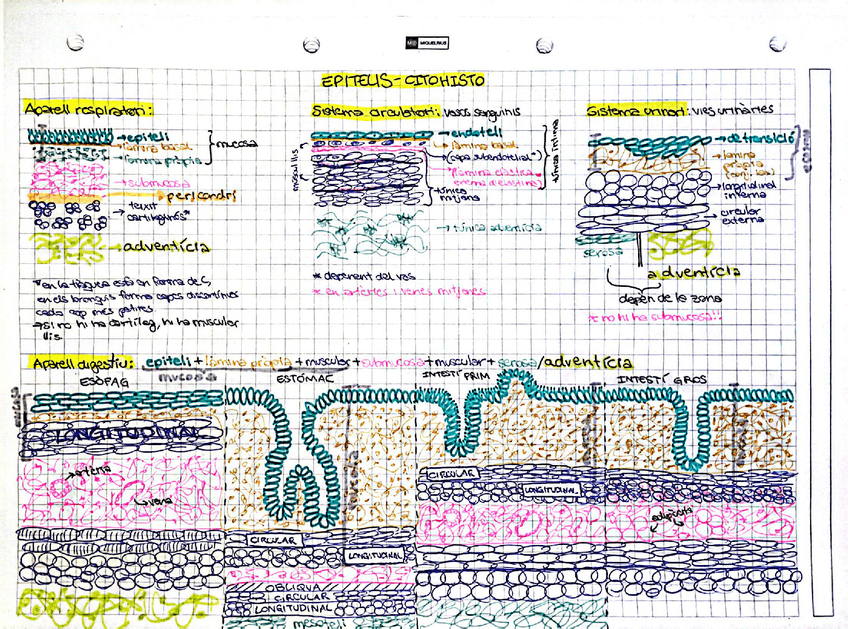 MIQUELRIUS
EPITELIS-CITOHISTO
Aparell respiratori:
epiteli
làmina basal
làmina pròpia
mucosa
submucosa
pericondri
teixit
cartilaginós*
adventícia
*en la tràquea està en forma de C,
en els bronquis forma capes discontínues
cada cop més petites.
→ Si no hi ha cartílag, hi ha múscular
llis.
Sistema circulatori: vasos sanguinis
endoteli
làmina basal
(capa subendotelial*)
*làmina elàstica
interna
túnica íntima
múscul llis
túnica
mitjana
túnica adventícia
* depenent del vas
* en artèries i venes mitjanes
Sistema urinari: vies urinàries
de transició
làmina
pròpia
mucosa
longitudinal
interna
circular
externa
serosa
adventícia
depèn de la zona
* no hi ha submucosa!!
Aparell digestiu: epiteli + làmina pròpia + muscular + submucosa + muscular + serosa/adventícia
mucosa
ESÒFAG
ESTÓMAC
INTESTÍ PRIM
INTESTÍ GROS
mucosa
LONGITUDINAL
artèria
vena
mucosa
CIRCULAR
LONGITUDINAL
OBLIQUA
CIRCULAR
LONGITUDINAL
mesoteli
CIRCULAR
LONGITUDINAL
adipòcits